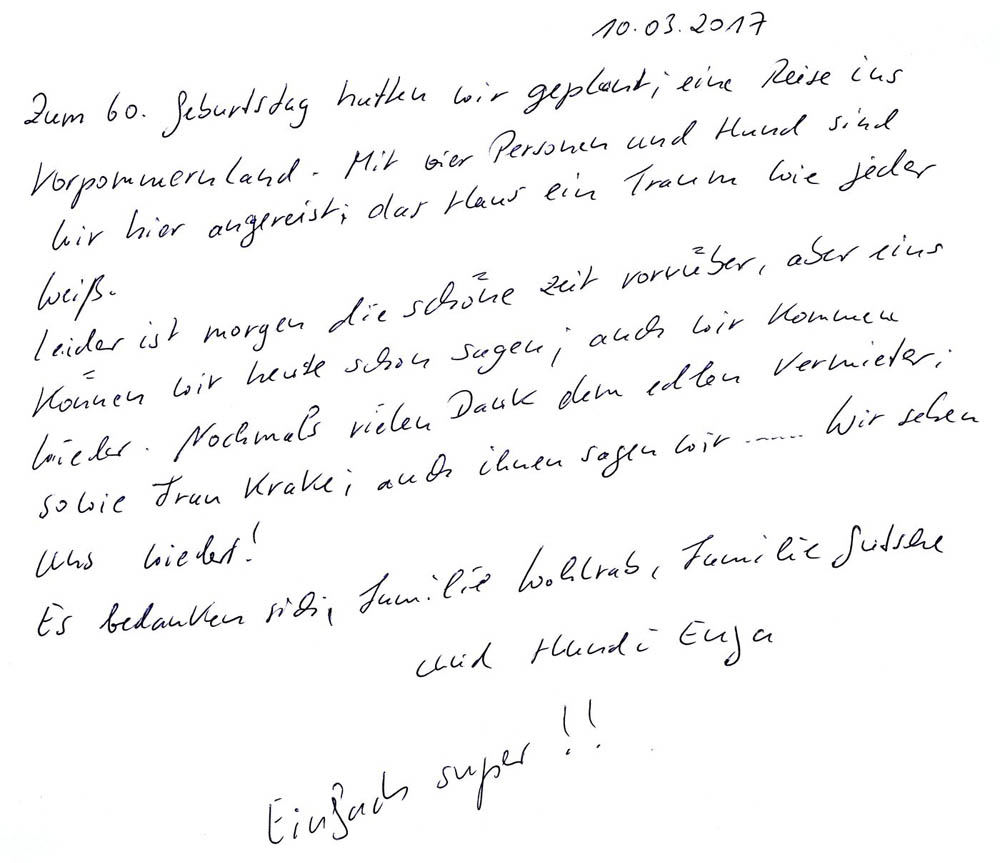 10.03.2017
Zum 60. Geburtstag hatten wir geplant; eine Reise ins
Vorpommernland. Mit vier Personen und Hund sind
wir hier angereist; das Haus ein Traum wie jeder
weiß.
Leider ist morgen die schöne Zeit vorrüber, aber eins
können wir heute schon sagen; auch wir kommen
wieder. Nochmals vielen Dank dem edlen Vermieter;
sowie Frau Krake; auch ihnen sagen wir ...... Wir sehen
uns wieder!
Es bedanken sich, Familie Wohlrab, Familie
und Hundi Enja
Einfach super!!